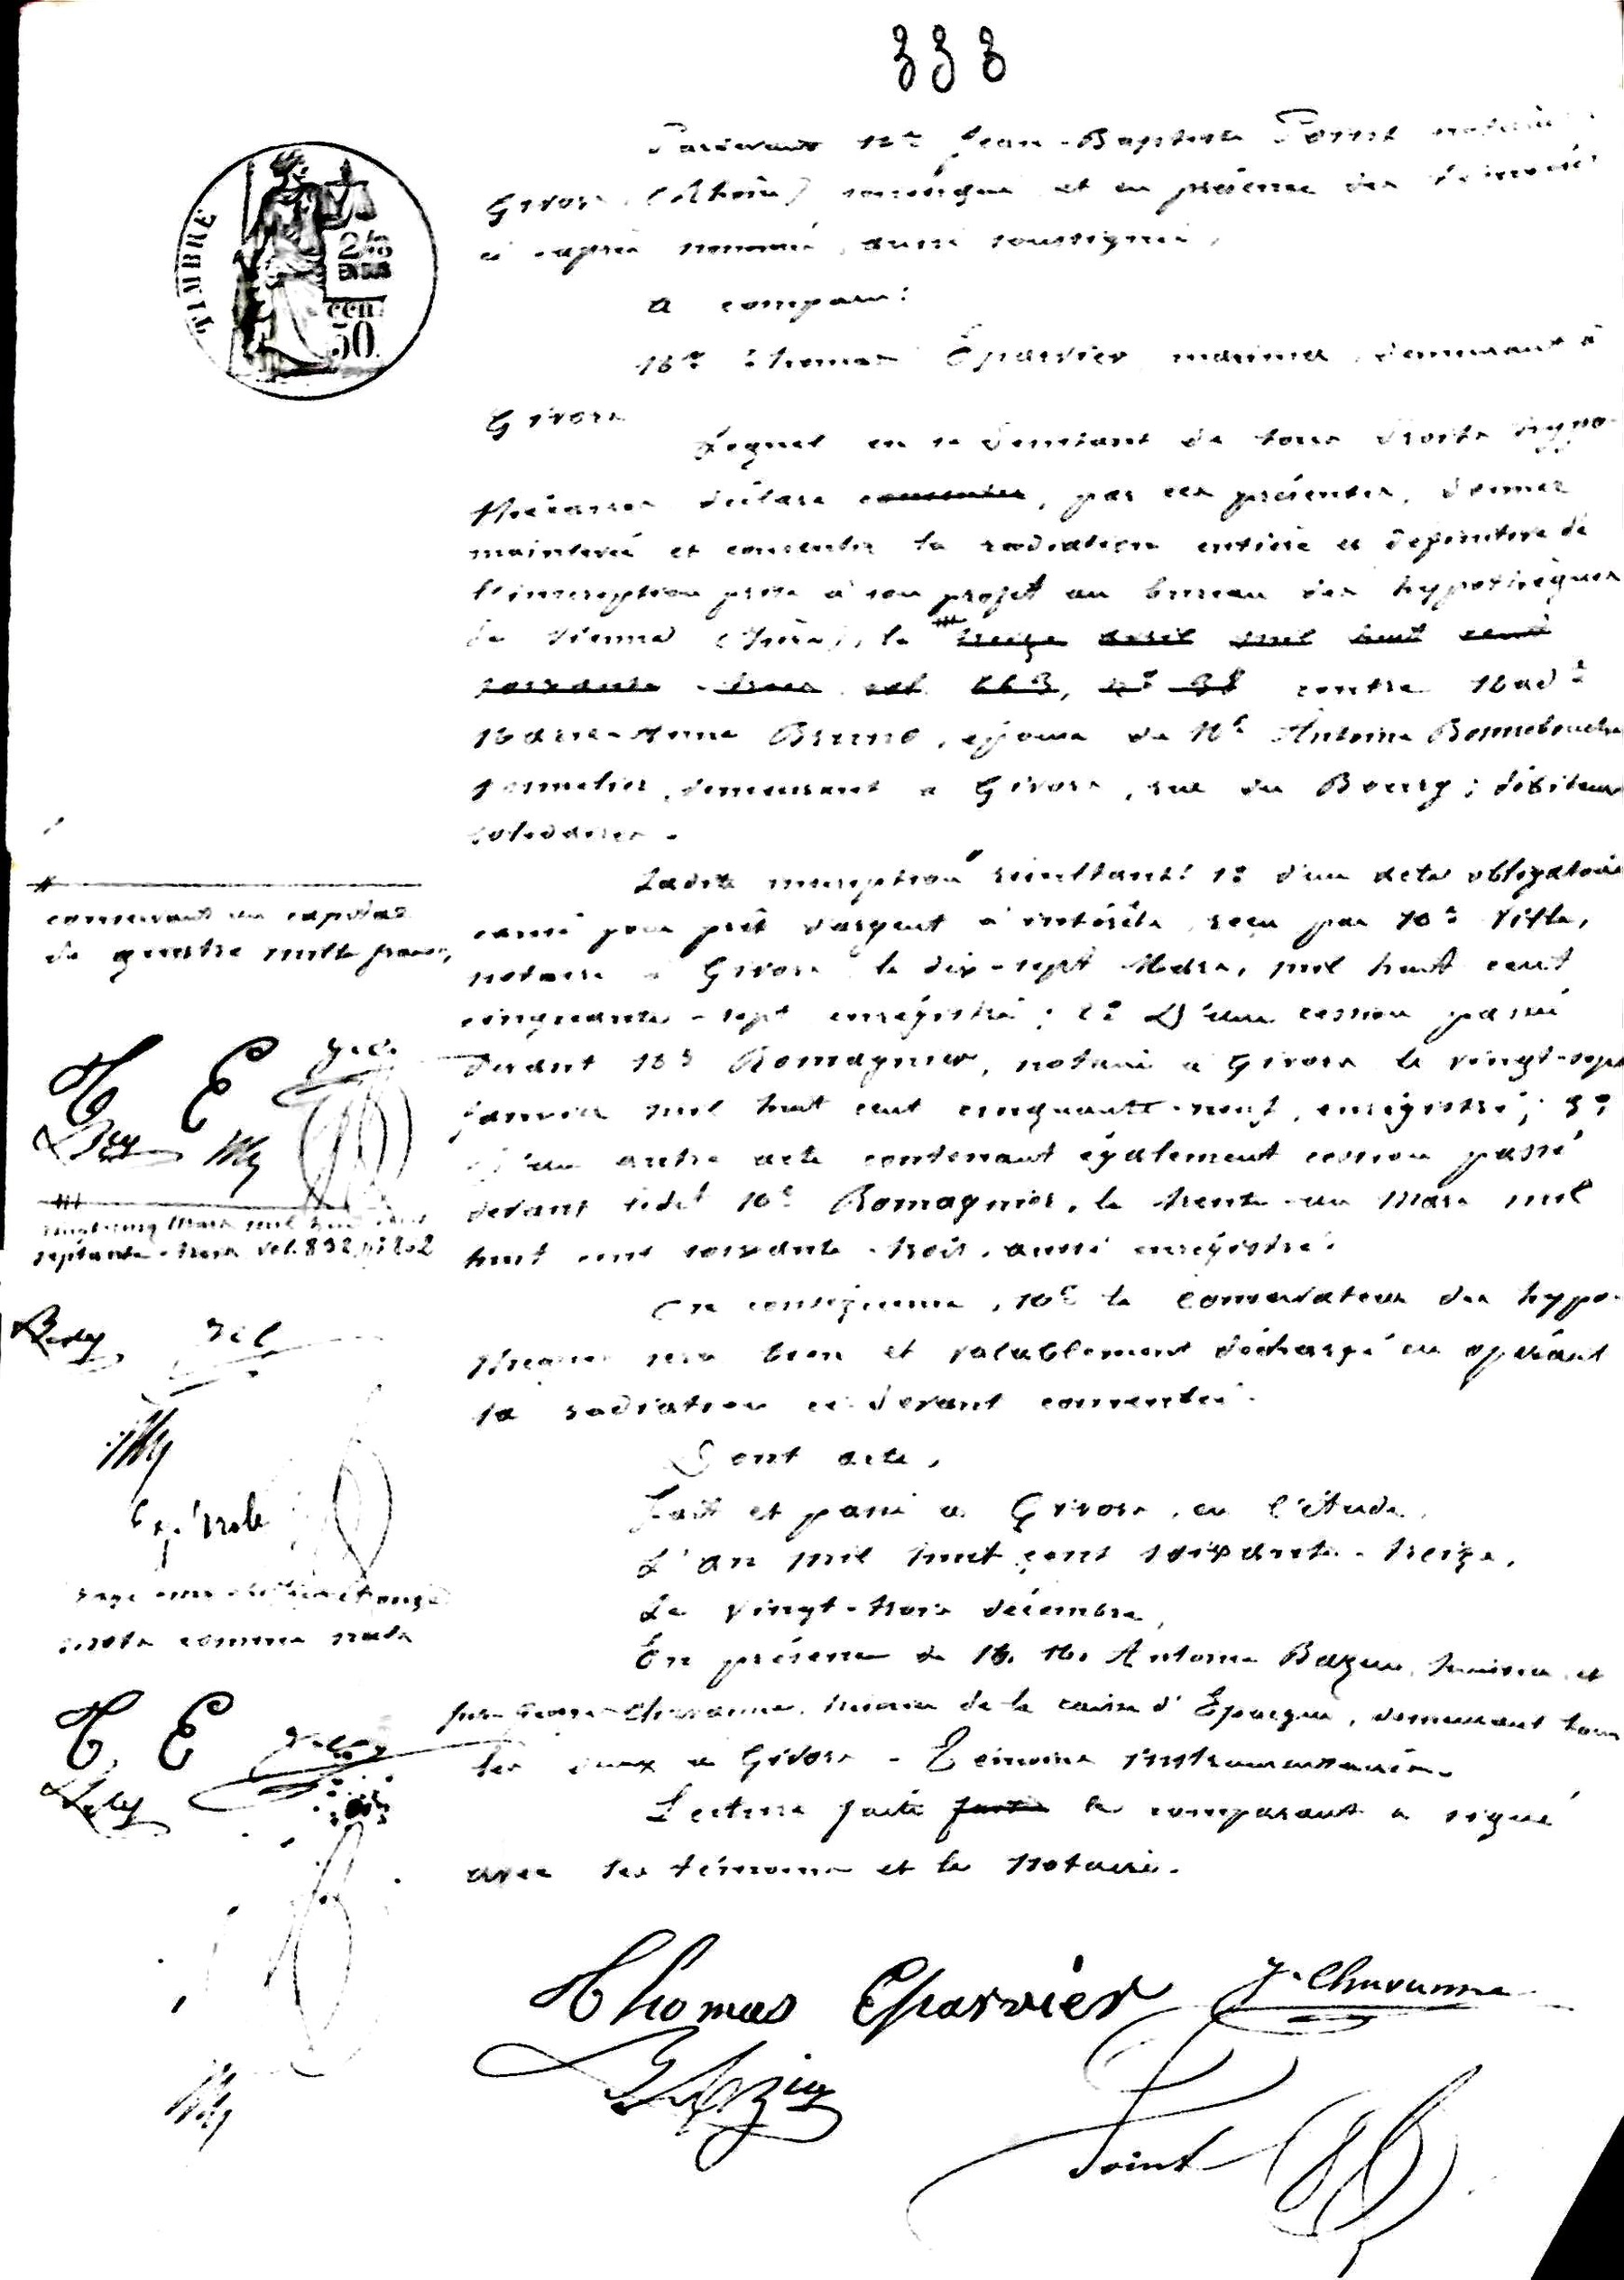 333
TIMBRE
cen
50
Pardevant Me Jean-Baptiste Point notaire
Givors (Rhône) soussigné et en présence des témoins
ci-après nommés, aussi soussignés,
a comparu:
Mr Thomas Eparvier marinier, demeurant à
Givors
Lequel en se démettant de tous droits hypo-
thécaires déclare consentir, par ces présentes, donner
mainlevée et consentir la radiation entière et définitive de
l'inscription prise à son profit au bureau des hypothèques
de Vienne (Isère), le treize avril mil huit cent
soixante-trois vol. 663, no 38 contre Made
Marie-Anne Bruno, épouse de Mr Antoine Bonnebouche
tonnelier, demeurant à Givors, rue du Bourg; débiteurs
solidaires.
Ladite inscription résultant: 1o d'un acte obligatoire
causé pour prêt d'argent à intérêts reçu par Me
notaire à Givors le dix-sept Mars, mil huit cent
cinquante-sept enregistré; 2o D'une cession passée
devant Me Romagnier, notaire à Givors le vingt-sept
janvier mil huit cent cinquante-neuf, enregistré; 3o
D'un autre acte contenant également cession passé
devant ledit Me Romagnier, le trente-un Mars mil
huit cent soixante-trois, aussi enregistré.
En conséquence, Mr le Conservateur des hypo-
thèques sera bien et valablement déchargé en opérant
la radiation ci-devant consentie.
Dont acte,
Fait et passé à Givors, en l'étude,
L'an mil huit cent soixante-treize,
Le vingt-trois décembre,
En présence de M. M. Antoine Bazin, et
Chavanne, de la caisse d'Epargne, demeurant tous
les deux à Givors - Témoins instrumentaires
Lecture faite faite le comparant a signé
avec les témoins et le notaire.
concernant un capital
de quatre mille francs,
T E
vingt-cinq Mars mil huit cent
septante-trois Vol. 832, no 202
comme nuls
T. E
Thomas Eparvier
J. Chavanne
Bazin
Point